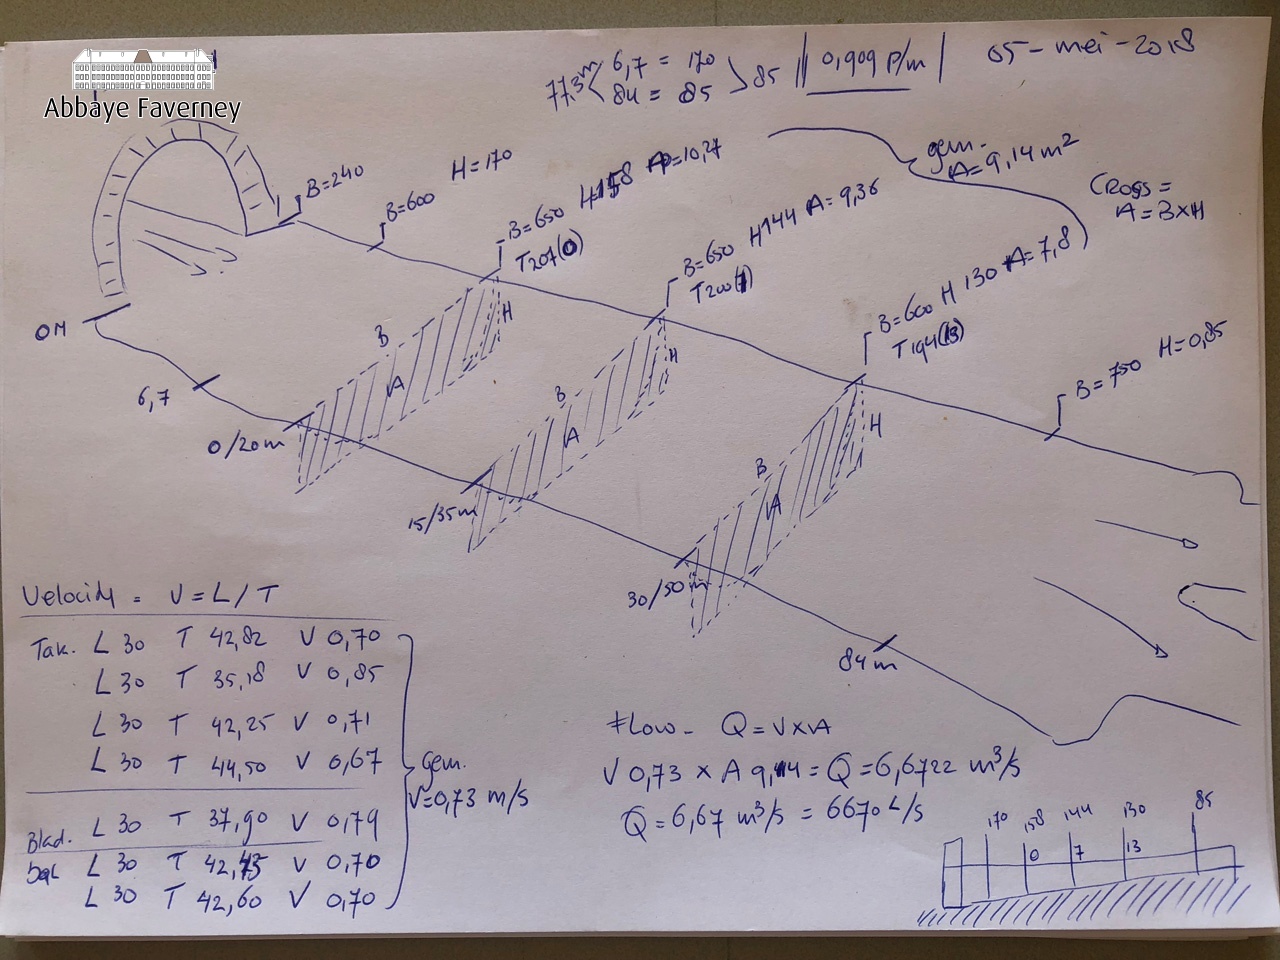 Abbaye Faverney
77,3m 6,7 = 170
84 = 85
85
0,909 P/m
05-mei-2018
B=240
B=600 H=170
B=650 H158 A=10,27
T207(0)
B=650 H144 A=9,36
T200(7)
B=600 H 130 A=7,8
T194(13)
B=750 H=0,85
gem.
A=9,14 m²
Cross =
A=B×H
0M
6,7
0/20m
15/35m
30/50m
84m
B
A
H
B
A
H
B
A
H
Velocity = V=L/T
Tak. L 30 T 42,82 V 0,70
L 30 T 35,18 V 0,85
L 30 T 42,25 V 0,71
L 30 T 44,50 V 0,67
Blad. L 30 T 37,90 V 0,79
L 30 T 42,45 V 0,70
L 30 T 42,60 V 0,70
gem.
V=0,73 m/s
Flow - Q=V×A
V 0,73 × A 9,14 = Q=6,6722 m³/s
Q=6,67 m³/s = 6670 L/s
170 158 144 130 85
0 7 13